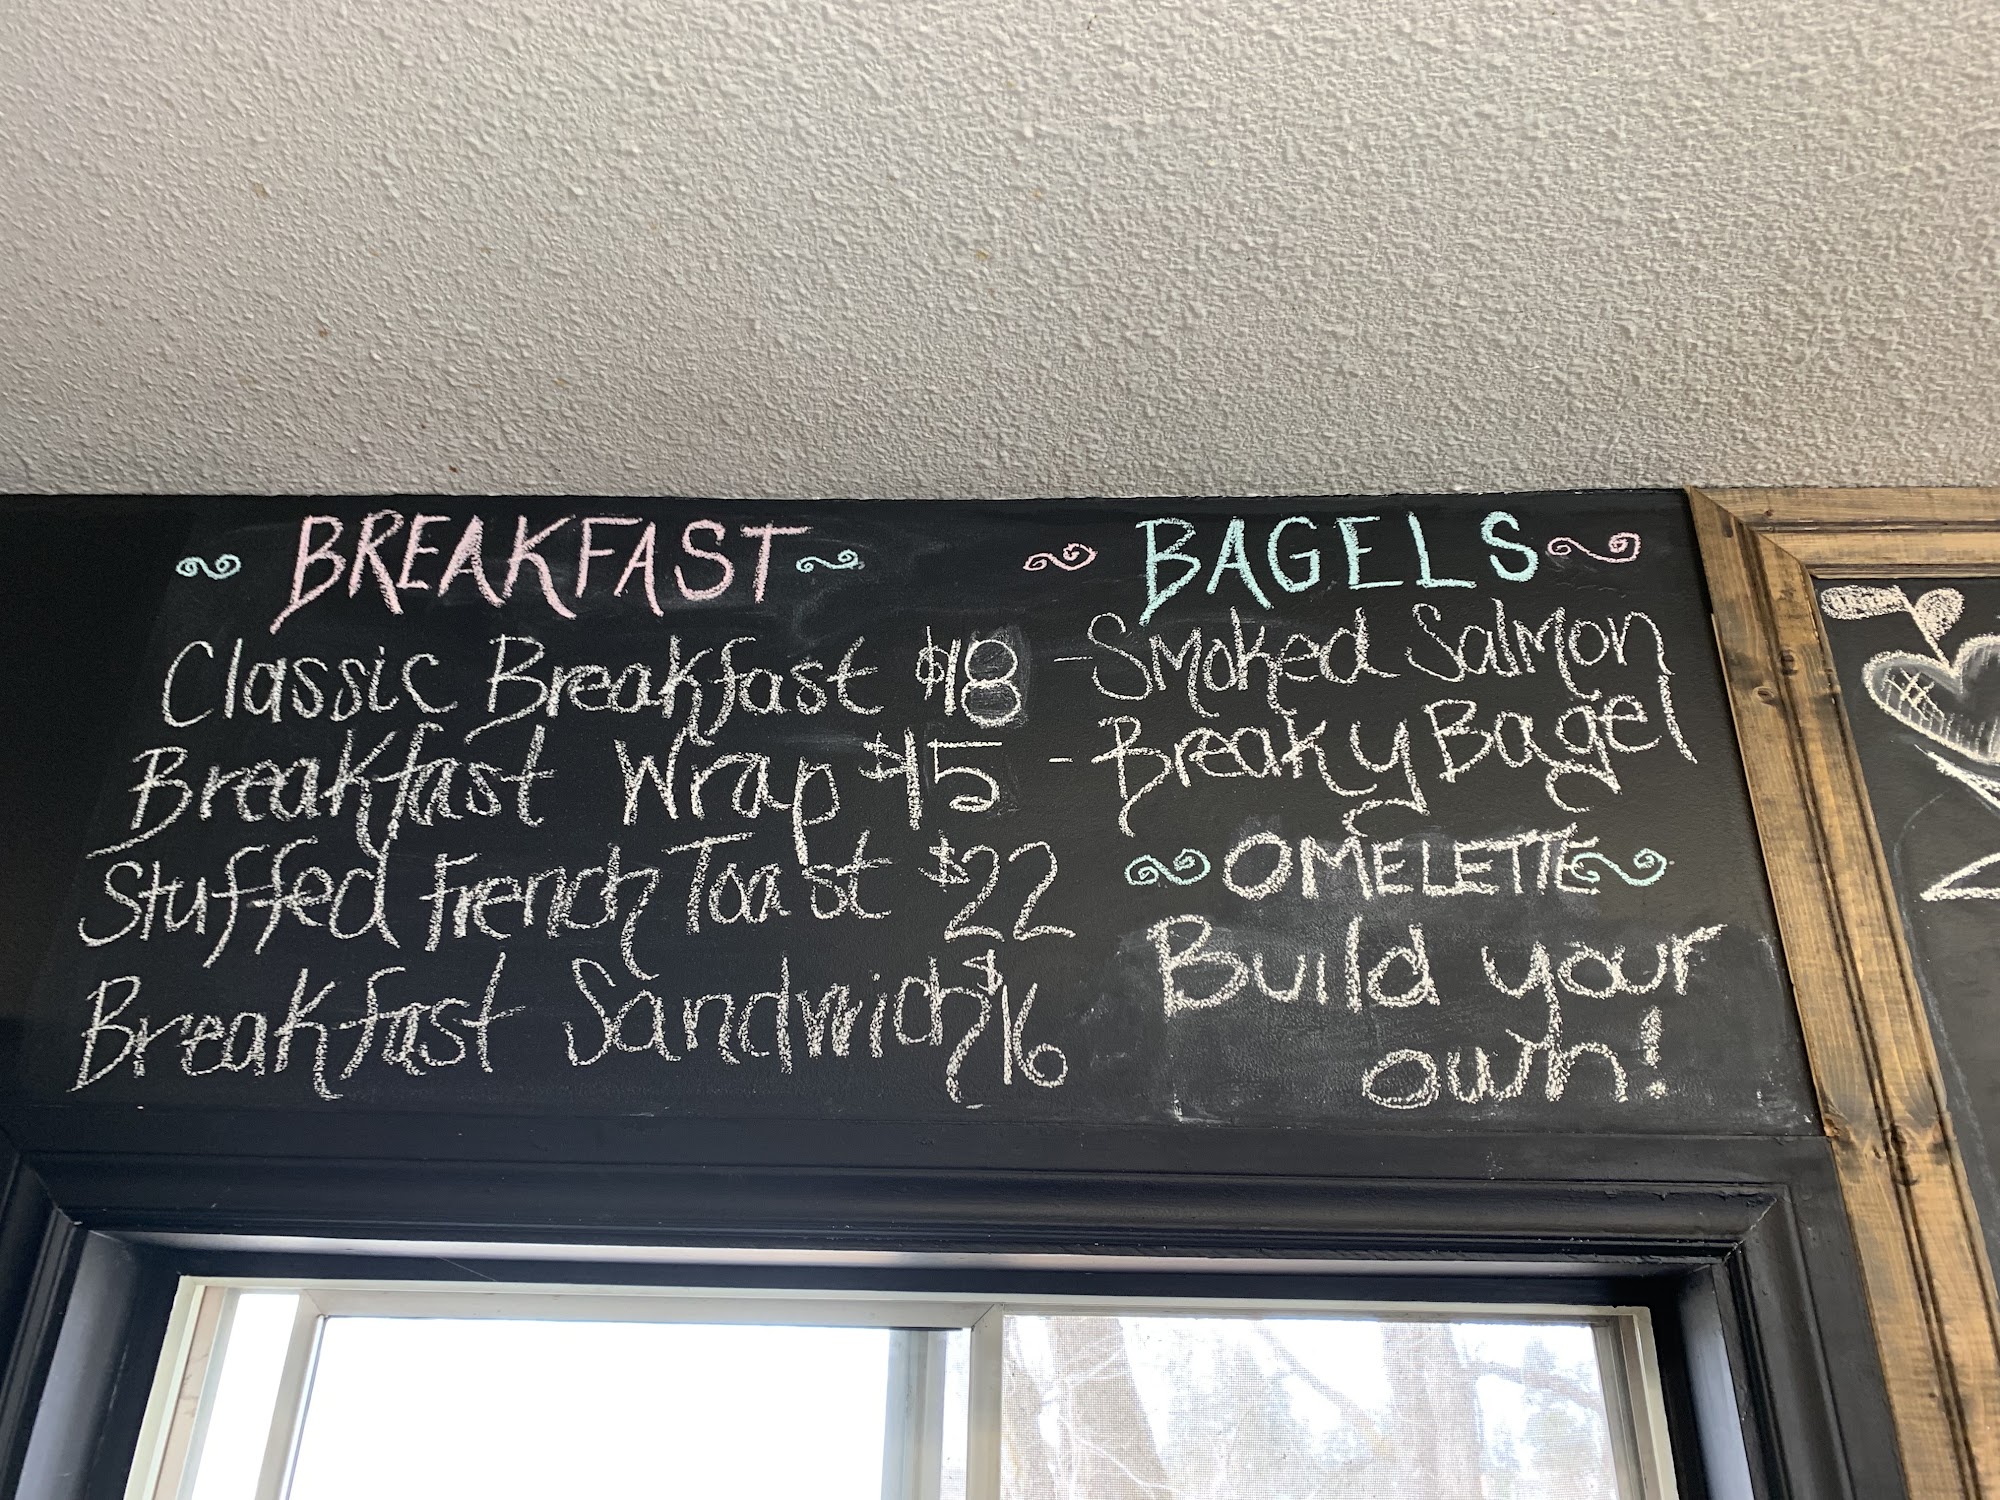 BREAKFAST
Classic Breakfast $18
Breakfast Wrap $15
Stuffed French Toast $22
Breakfast Sandwich $16
BAGELS
- Smoked Salmon
- Breaky Bagel
OMELETTE
Build your
own!